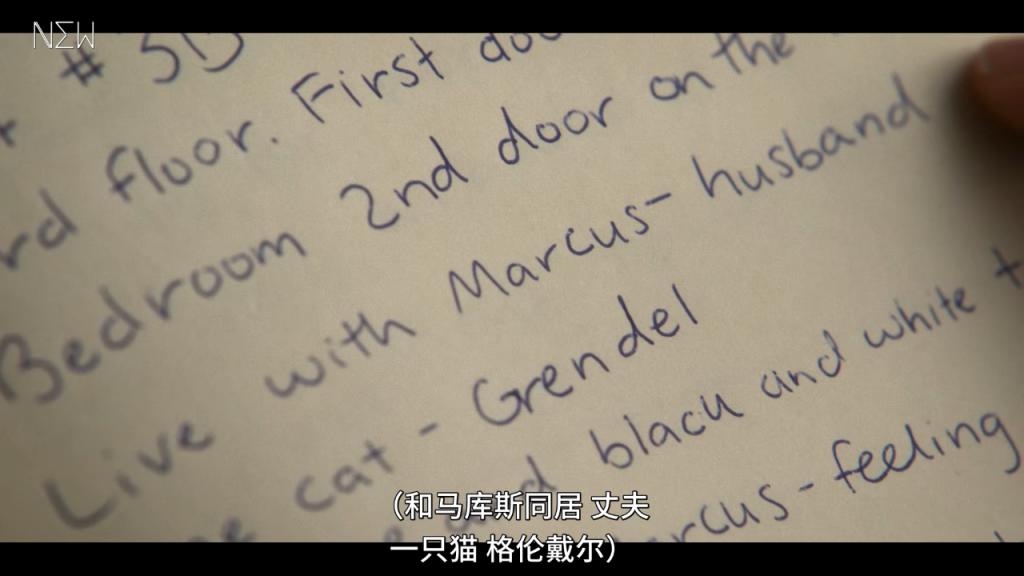 NEW
# 3B
rd floor. First
Bedroom 2nd door on the
Live with Marcus - husband
cat - Grendel
and black and white
rcus - feeling
（和马库斯同居 丈夫
一只猫 格伦戴尔）